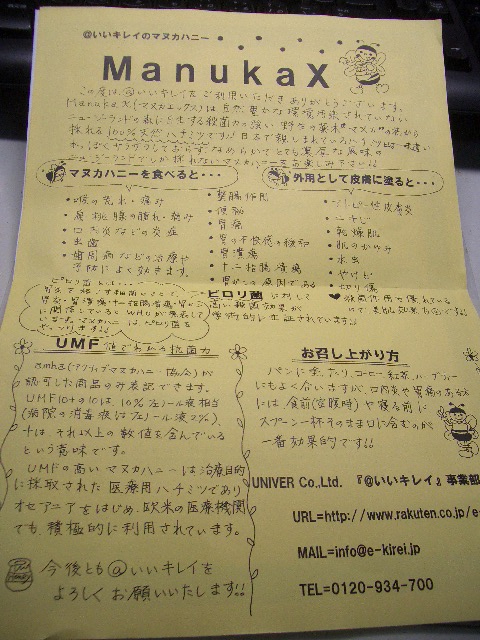 @いいキレイのマヌカハニー
ManukaX
この度は、@いいキレイをご利用いただきありがとうございます。
ManukaX(マヌカエックス)は自然豊かな環境汚染されていない
ニュージーランドの
採れる100%天然ハチミツです!
マヌカハニーを食べると・・・
・喉の荒れ・痛み
・扁桃腺の腫れ・痛み
・口内炎などの炎症
・虫歯
・歯周病などの治療や
予防によく効きます。
・整腸作用
・便秘
・胃痛
・胃の不快感の緩和
・胃潰瘍
・十二指腸潰瘍
・胃がんの原因である
ピロリ菌に対して
高い殺菌効果が
学術的に立証されています!!
外用として皮膚に塗ると・・・
・アトピー性皮膚炎
・ニキビ
・乾燥肌
・肌のかゆみ
・水虫
・やけど
・切り傷
UMF値でわかる抗菌力
amha(アクティブマヌカハニー協会)が
認可した商品のみ表記できます。
UMF10+の10は、10%フェノール液相当
(病院の消毒液はフェノール液2%)、
+は、それ以上の数値を含んでいる
という意味です。
UMFの高いマヌカハニーは治療目的
に採取された医療用ハチミツであり
オセアニアをはじめ、欧米の医療機関
でも積極的に利用されています。
今後とも@いいキレイを
よろしくお願いいたします!!
お召し上がり方
パンにぬったり、コーヒー、紅茶、ハーブティー
にもよく合いますが、口内炎や胃痛のある人
には、食前(空腹時)や寝る前に
スプーン一杯そのまま口に含むのが
一番効果的です!!
UNIVER Co.,Ltd. 『@いいキレイ』事業部
URL=http://www.rakuten.co.jp/e-
MAIL=info@e-kirei.jp
TEL=0120-934-700